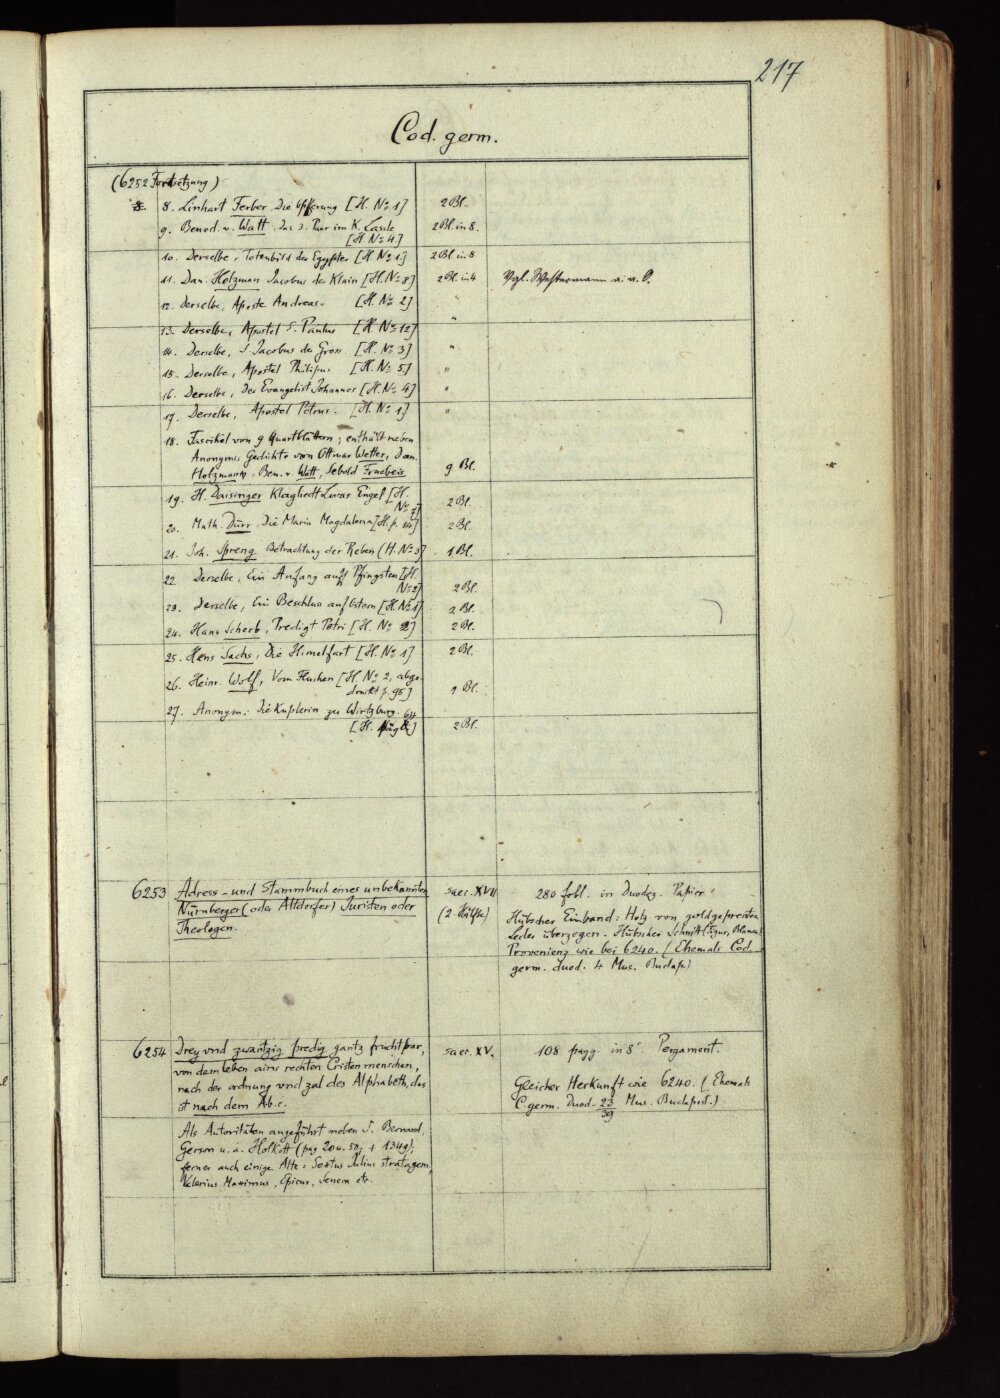 217
Cod. germ.
(6252 Fortsetzung)
8. Linhart Ferber, Die Opfferung [H. No 1] 2 Bl.
9. Bened. v. Watt. Das 3. Paar im K. Lasde 2 Bl. in 8.
[H. No 4]
10. Derselbe, Totenbild der Egypter [H. No 1.] 2 Bl. in 8
11. Dan. Holzman Jacobus der Klain [H. No 8] 2 Bl. in 4 Vgl.
12. Derselbe, Aposte Andreas. [H. No 2] "
13. Derselbe, Apostel S. Paulus [H. No 12] "
14. Derselbe, S. Jacobus der Gross [H. No 3] "
15. Derselbe, Apostel Philipus [H. No 5] "
16. Derselbe, Der Evangelist Johannes [H. No 4] "
17. Derselbe, Apostel Petrus. [H. No 1] "
18. Fascikel von 9 Quartblättern; enthält neben
Anonymis Gedichte von Ottmar Wetter, Dan.
Holzmann, Ben. v. Watt, Sebold 9 Bl.
19. H. Daisinger Klaglied Lucas Engel [H.
No 7] 2 Bl.
20. Math. Dürr, Die Maria Magdalena [H. p. 2 Bl.
21. Joh. Spreng Betrachtung der Reben (H. No 3) 1 Bl.
22. Derselbe, Ein Anfang auff Pfingsten [H.
No 2] 2 Bl.
23. Derselbe, Ein Beschluss auf Ostern [H. No 1] 2 Bl.
24. Hans Scherb, Predigt Petri [H. No 2] 2 Bl.
25. Hans Sachs, Die Himelfart [H. No 1] 2 Bl.
26. Heinr. Wolf, Vom Fluchen [H. No 2, abge-
druckt p. 95] 1 Bl.
27. Anonym: Die Kuplerin zu Wirtzburg.
[H. pag 64] 2 Bl.
6253 Adress- und Stammbuch eines unbekannten saec. XVII 280 foll. in Duodez. Papier
Nürnberger (oder Altdorfer) Juristen oder (2. Hälfte) Hübscher Einband: Holz von goldgepresten
Theologen. Leder überzogen. Hübscher Schnitt (Figur, Blumen)
Provenienz wie bei 6240. (Ehemals Cod.
germ. duod. 4 Mus. Budap.)
6254 Drey vnd zwantzig predig gantz fruchtpar, saec. XV. 108 pagg. in 8o. Pergament.
von dem leben ains rechten Cristenmenschen,
nach der ordnung vnd zal des Alphabeth, das Gleicher Herkunft wie 6240. (Ehemals
ist nach dem Ab.c. C germ. Duod. 23/39 Mus. Budapest.)
Als Autoritäten angeführt neben S. Bernard,
Gerson u. a. Holkott (pag 20 u. 50, † 1349);
ferner auch einige Alte: Sextus Julius stratagem,
Valerius Maximus, Epicur, Seneca etc.